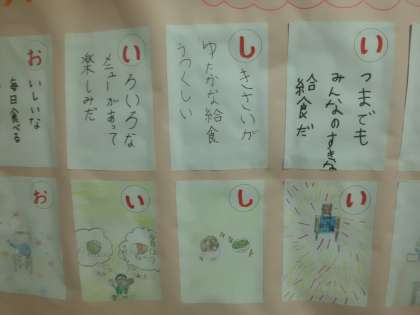 おいしいな
毎日食べる
いろいろな
メニューがあって
楽しみだ
しきさいが
ゆたかな給食
うつくしい
いつまでも
みんなのすきな
給食だ
お
い
し
い